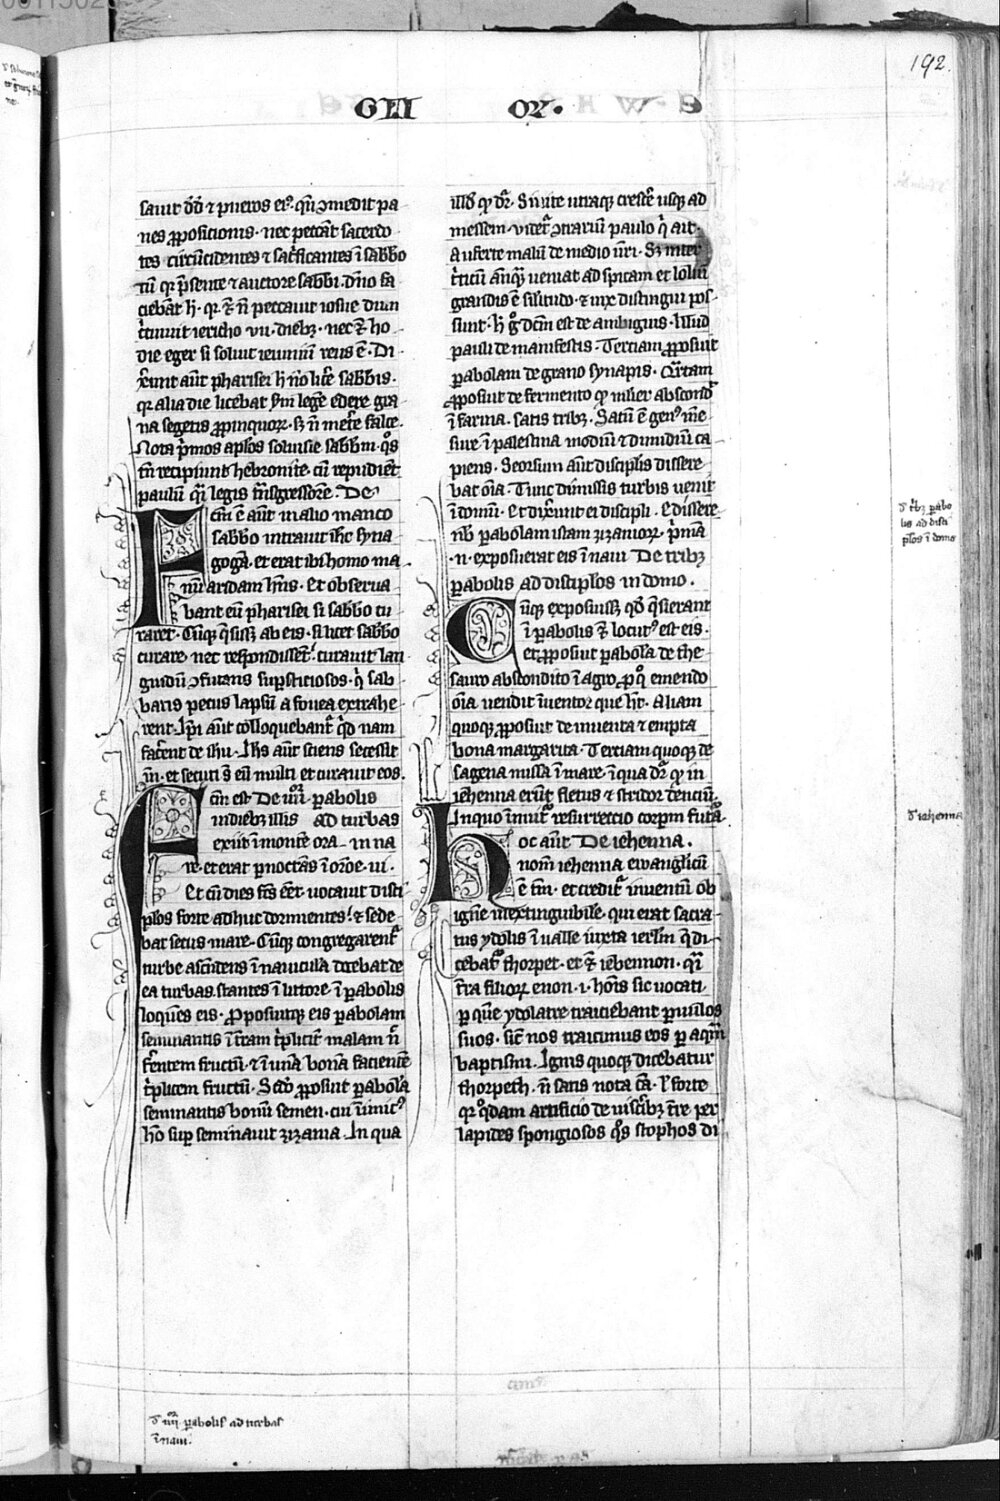 192
GLI OR.
sauit dd̄ ⁊ pueros eiꝰ. qn̄ ꝯmedit pa
nes ꝓpositionis. nec peccāt sacerdo
tes circūcidentes ⁊ sac̄ficantes ī sab̄bo
ciebāt h̄. qr ⁊ n̄ peccauit iosue dum
c̄cuiuit iericho vii. dieb⁊. nec ⁊ ho
die eger si soluit ieiuniū reus ē. Di
xerunt aūt pharisei h̄ nō licē sabbis.
qr alia die licebat scdm legē edere gra
na segetis ꝓpinquoꝝ. s⁊ n̄ metē falce.
Nota pͥmos apłos soluisse sabbm̄. qͦs
tn̄ recipiunt hebronite. cū repudiēt
paulū qͣi legis tͣnsgressorē. De
cm̄ ē aūt in alio manco
sab̄bo intrauit ih̄c syna
gogā. et erat ibi homo ma
nū aridam hn̄s. Et obserua
bant eū pharisei si sab̄bo cu
raret. Cūq̄ q̄siss⁊ ab eis. si licet sab̄bo
curare. nec respondissēt. curauit lan
guidū ꝯfutans suꝑsticiosos. qͥ sab
batis pecus lapsū a fouea extrahe
rent. Ip̄i aūt colloquebant̄ qͥd nam
fac̄ent de ih̄u. Ih̄s aūt sciens secessit
īn. et secuti s̄ eū multi et curauit eos.
cm̄ est De iiiiͦr. ꝑabolis
in dieb⁊ illis ad turbas
exiit ī monte ora- in na
re. et erat ꝑnoctās ī orōe. ui.
Et cū dies fc̄s eēt. uocauit disci
pl̄os forte adhuc dormientes. ⁊ sede
bat secus mare. Cūq̄ congregarent̄
turbe ascendens ī nauiculā docebat de
ea turbas stantes ī littore. ī ꝑabolis
loquēs eis. Proposuitq̄ eis ꝑabolam
seminantis ī tr̄am tͥpliciꞇ̄ malam n̄
fc̄entem fructū. ⁊ ī unā bonā facientē
tͥplicem fructū. Scdō ꝓposuit ꝑabolā
seminantis bonū semen. cui inimicꝰ
hō suꝑ seminauit zizania. In qua
illd̄ qͩ dr̄. Sinite utraq̄ crescē usq̄ ad
messem. videt̄ ꝯtrariū paulo qͥ ait.
Auferte malū de medio nr̄i. S⁊ inter
tͥticū anͣq̄ veniat ad spicam et loliū
grandis ē silitudo. ⁊ uix distingui pos
sunt. h̄ gͦ dcm̄ est de ambiguis. Illud
pauli de manifestis. Terciam ꝓposuit
ꝑabolam de grano synapis. Qͣrtam
ꝓposuit de fermento qͩ mulier abscond̄
ī farina. satis trib⁊. Satū ē genꝰ mē
sure ī palestina modiū ⁊ dimidiū ca
piens. Seorsum aūt disciplis dissere
bat oīa. Tunc dimissis turbis uenit
ī domū. Et dixerunt ei discipli. edissere
nob̄ ꝑabolam istam zizanioꝝ. pͥmā
.n. exposuerat eis ī naui De trib⁊
ꝑabolis ad disciplos in domo.
ūq̄ exposuiss⁊ qd̄ q̄sierant
ī ꝑabolis ⁊ locutꝰ est eis.
et ꝓposuit ꝑabolā de the
sauro abscondito ī agro, ꝓ qͦ emendo
oīa vendit īuentor que h̄t. Aliam
quoq̄ ꝓposuit de inuenta ⁊ empta
bona margarita. Terciam quoq̄ de
sagena missa ī mare. ī qua dr̄ qͩ in
iehenna erūt fletus ⁊ stridor dentiū.
In quo īnuit̄ resurrectio corpm̄ futͣa.
oc aūt De iehenna.
nom̄ iehenna ewangelicū
ē tm̄. et credit̄ inuentū ob
igne inextinguibile. qui erat sacra
tus ydolis ī ualle iuxta ierlm̄ q̄ di
cebat̄ thorpet. et ⁊ iehennon. qͣi
tr̄a filioꝝ ennon .i. hoīs sic uocati.
ꝑ quē ydolatre traiciebant ꝑuulos
suos. sic̄ nos traicimus eos ꝑ aqͣm
baptismi. Ignis quoq̄ dicebatur
thorpeth. n̄ satis nota cā. ł forte
qr qͦdam artificio de uisc̄ib⁊ tr̄e per
lapides spongiosos qͦs stophos di
d̄ tͥb⁊ ꝑabo
lis ad disci
plos ī domo
d̄ iehenna
d̄ iiiiͦr ꝑabolis ad turbas
ī naui.